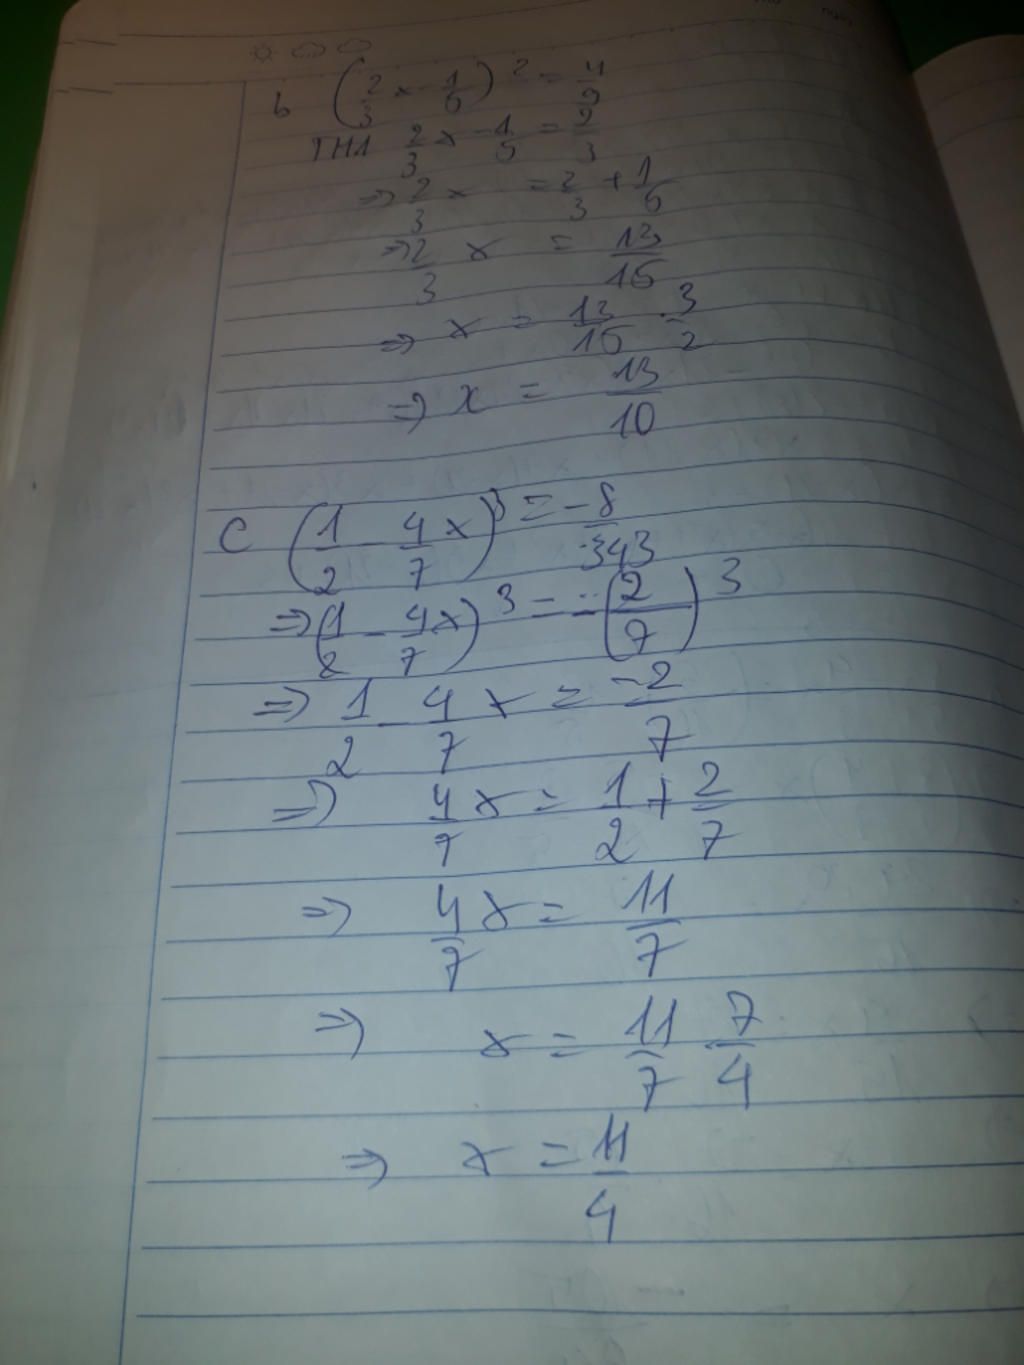 b (2/3 x - 1/5)² = 4/9
TH1 2/3 x - 1/5 = 2/3
=> 2/3 x = 2/3 + 1/5
=> 2/3 x = 13/15
=> x = 13/15 . 3/2
=> x = 13/10
C (1/2 - 4/7 x)³ = -8/343
=> (1/2 - 4/7 x)³ = -(2/7)³
=> 1/2 - 4/7 x = -2/7
=> 4/7 x = 1/2 + 2/7
=> 4/7 x = 11/7
=> x = 11/7 7/4
=> x = 11/4